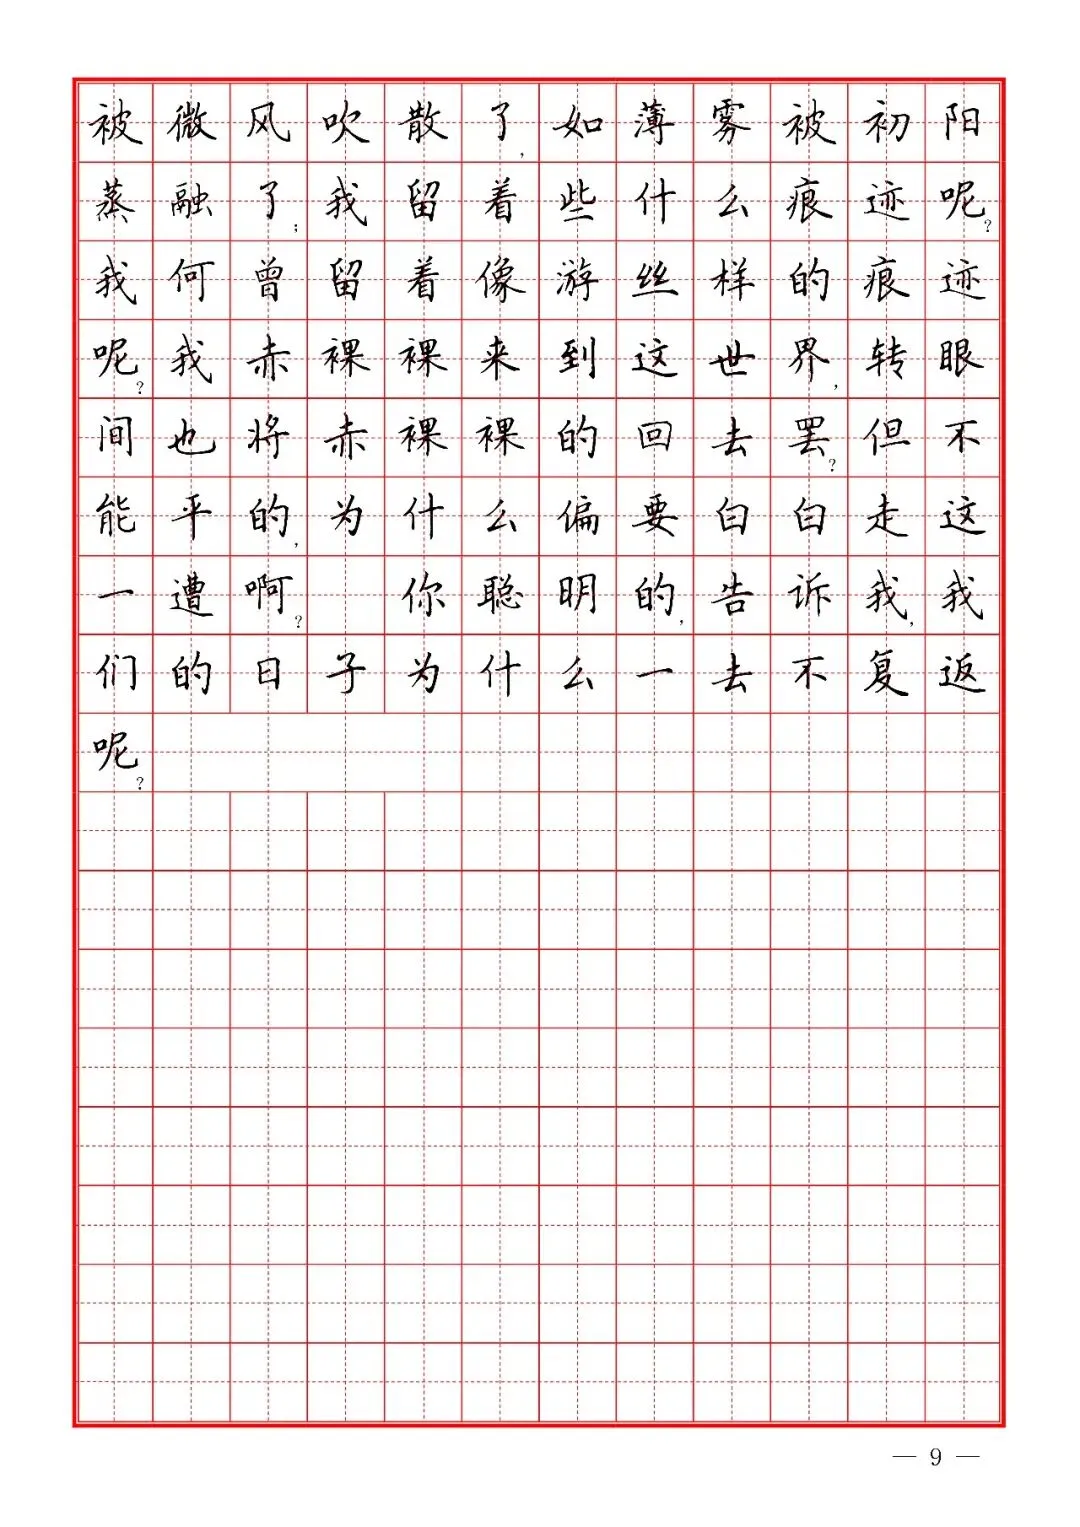 被微风吹散了,如薄雾被初阳
蒸融了;我留着些什么痕迹呢?
我何曾留着像游丝样的痕迹
呢?我赤裸裸来到这世界,转眼
间也将赤裸裸的回去罢?但不
能平的,为什么偏要白白走这
一遭啊? 你聪明的,告诉我,我
们的日子为什么一去不复返
呢?
— 9 —